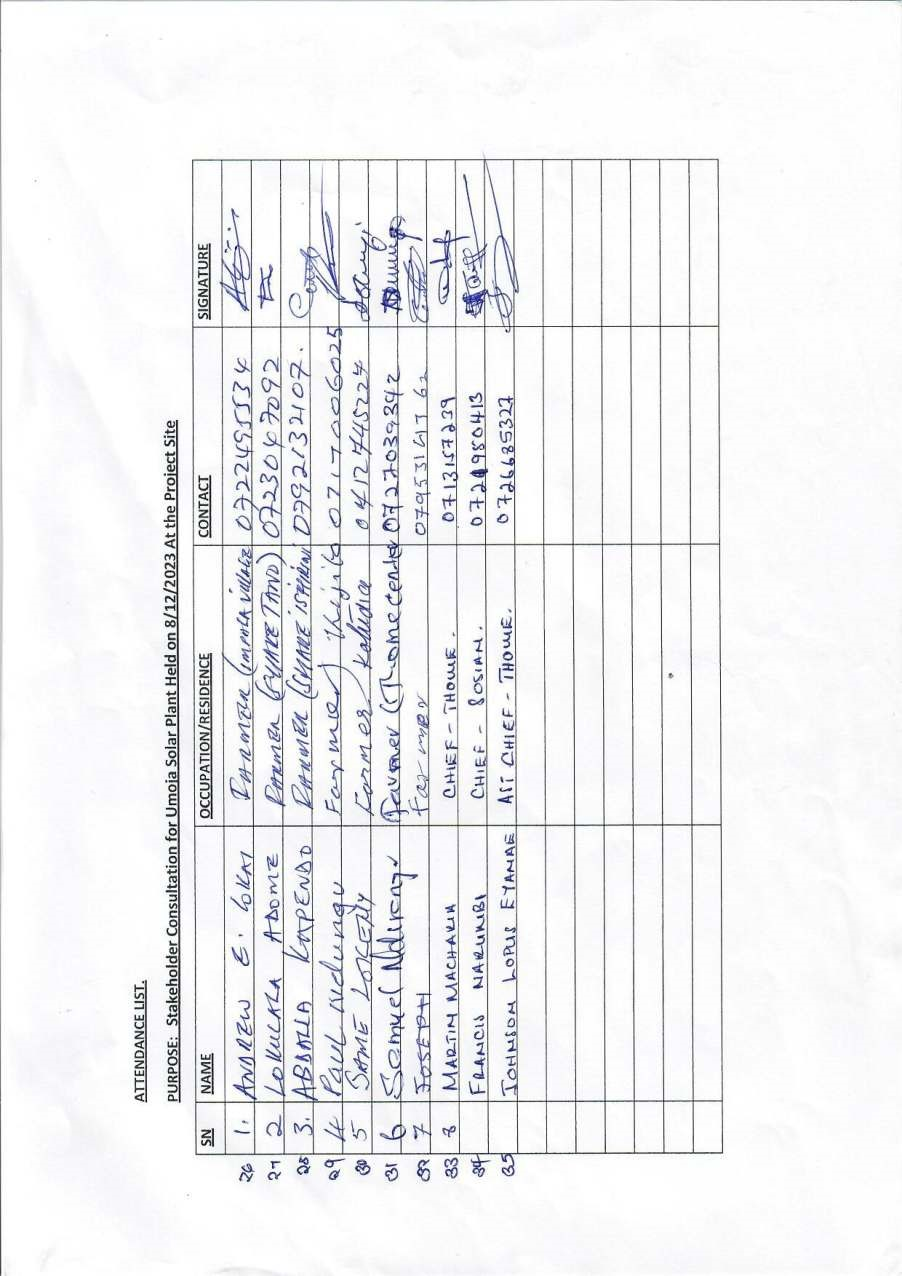 ATTENDANCE LIST.
PURPOSE: Stakeholder Consultation for Umoja Solar Plant Held on 8/12/2023 At the Project Site
SN NAME OCCUPATION/RESIDENCE CONTACT SIGNATURE
26 1. ANDREW E. LOKAI FARMER (IMPALA VILLAGE 0722495534
27 2 LOKULALA ADOME FARMER 0723047092
28 3. ABDALLA KAPENDO FARMER 0792132107.
29 4 PAUL Ndungu Farmer Thigito 0717006025
30 5 SAME LOKENY Farmer 0412745224
31 6 Samuel Ndirangu Farmer (Thome center 0727039342
32 7 JOSEPH Farmer 0795314762
33 8 MARTIN MACHARIA CHIEF - THOME. 0713157239
34 FRANCIS NARUKUBI CHIEF - SOSIAN. 0721980413
35 JOHNSON LOPUS EYANAE AST CHIEF - THOME. 0726685327